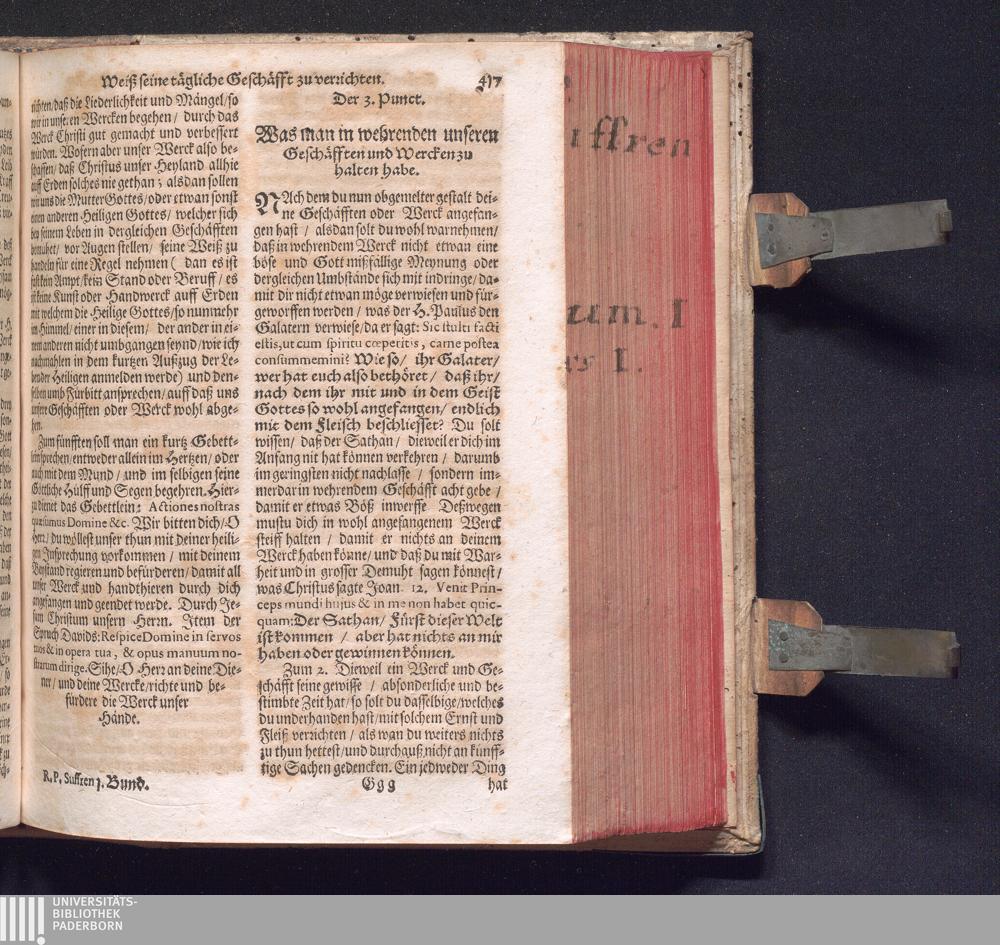 Weiß seine tägliche Geschäfft zu verrichten.
417
richten/daß die Liederlichkeit und Mängel/so
wir in unseren Wercken begehen/ durch das
Werck Christi gut gemacht und verbessert
würden. Wofern aber unser Werck also be-
schaffen/ daß Christus unser Heyland allhie
auff Erden solches nie gethan; alsdan sollen
wir uns die Mutter Gottes/oder etwan sonst
einen anderen Heiligen Gottes/ welcher sich
bey seinem Leben in dergleichen Geschäfften
bemühet/ vor Augen stellen/ seine Weiß zu
handeln für eine Regel nehmen ( dan es ist
fast kein Ampt/kein Stand oder Beruff/ es
ist keine Kunst oder Handwerck auff Erden
mit welchem die Heilige Gottes/so nunmehr
im Himmel/einer in diesem/ der ander in ei-
nem anderen nicht umbgangen seynd/wie ich
nachmahlen in dem kurtzen Außzug der Le-
bender Heiligen anmelden werde) und den-
selben umb Fürbitt ansprechen/auff daß uns
unsere Geschäfften oder Werck wohl abge-
hen.
Zum fünfften soll man ein kurtz Gebett-
lein sprechen/entweder allein im Hertzen/oder
auch mit dem Mund/und im selbigen seine
Göttliche Hülff und Segen begehren. Hier-
zu dienet das Gebettlein: Actiones nostras
quæsumus Domine &c. Wir bitten dich/O
Herr/du wöllest unser thun mit deiner heili-
gen Insprechung vorkommen/ mit deinem
Beystand regieren und befürderen/damit all
unser Werck und handthieren durch dich
angefangen und geendet werde. Durch Je-
sum Christum unsern Herrn. Item der
Spruch Davids: Respice Domine in servos
tuos & in opera tua, & opus manuum no-
strarum dirige. Sihe/O Herr an deine Die-
ner/und deine Wercke/richte und be-
fürdere die Werck unser
Hände.
R. P. Suffren 1. Bund.
Der 3. Punct.
Was man in wehrenden unseren
Geschäfften und Wercken zu
halten habe.
NAch dem du nun obgemelter gestalt dei-
ne Geschäfften oder Werck angefan-
gen hast/ alsdan solt du wohl warnehmen/
daß in wehrendem Werck nicht etwan eine
böse und Gott mißfallige Meynung oder
dergleichen Umbstände sich mit indringe/da-
mit dir nicht etwan möge verwiesen und für-
geworffen werden/ was der H. Paulus den
Galatern verwiese/da er sagt: Sic stulti facti
estis, ut cum spiritu cœperitis, carne postea
consummemini? Wie so/ ihr Galater/
wer hat euch also bethöret/ daß ihr/
nach dem ihr mit und in dem Geist
Gottes so wohl angefangen/ endlich
mit dem Fleisch beschliesset? Du solt
wissen/ daß der Sathan/ dieweil er dich im
Anfang nit hat können verkehren/ darumb
im geringsten nicht nachlasse/ sondern im-
merdar in wehrendem Geschäfft acht gebe/
damit er etwas Böß inwerffe Deßwegen
mustu dich in wohl angefangenem Werck
steiff halten/ damit er nichts an deinem
Werck haben könne/und daß du mit War-
heit und in grosser Demuht sagen könnest/
was Christus sagte Joan. 12. Venit Prin-
ceps mundi hujus & in me non habet quic-
quam: Der Sathan/ Fürst dieser Welt
ist kommen/ aber hat nichts an mir
haben oder gewinnen können.
Zum 2. Dieweil ein Werck und Ge-
schäfft seine gewisse/ absonderliche und be-
stimbte Zeit hat/so solt du dasselbige/welches
du underhanden hast/mit solchem Ernst und
Fleiß verrichten/ als wan du weiters nichts
zu thun hettest/und durchauß nicht an künff-
tige Sachen gedencken. Ein jedweder Ding
Ggg
hat
iffren
um. I
I.
UNIVERSITÄTS-
BIBLIOTHEK
PADERBORN